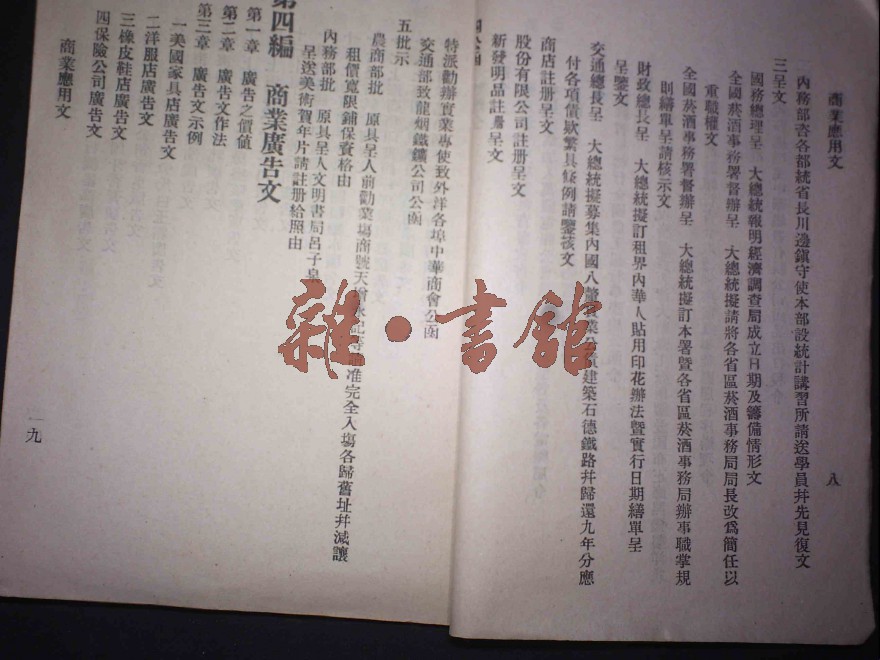 商業應用文
八
內務部咨各都統省長川邊鎮守使本部設統計講習所請送學員幷先見復文
三呈文
國務總理呈 大總統報明經濟調查局成立日期及籌備情形文
全國菸酒事務署督辦呈 大總統擬請將各省區菸酒事務局局長改爲簡任以
重職權文
全國菸酒事務署督辦呈 大總統擬訂本署暨各省區菸酒事務局辦事職掌規
則繕單呈請核示文
財政總長呈 大總統擬訂租界內華人貼用印花辦法暨實行日期繕單呈
呈鑒文
交通總長呈 大總統擬募集內國八釐實業公債建築石德鐵路幷歸還九年分應
付各項債欵繁具條例請鑒核文
商店註册呈文
股份有限公司註册呈文
新發明品註册呈文
四公函
特派勸辦實業專使致外洋各埠中華商會公函
交通部致龍烟鐵鑛公司公函
五批示
農商部批 原具呈人前勸業場商號天
准完全入場各歸舊址幷減讓
租價寬限鋪保資格由
內務部批 原具呈人文明書局呂子泉
呈送美術賀年片請註册給照由
第四編 商業廣告文
第一章 廣告之價値
第二章 廣告文作法
第三章 廣告文示例
一美國家具店廣告文
二洋服店廣告文
三橡皮鞋店廣告文
四保險公司廣告文
商業應用文
一九
雜·書館